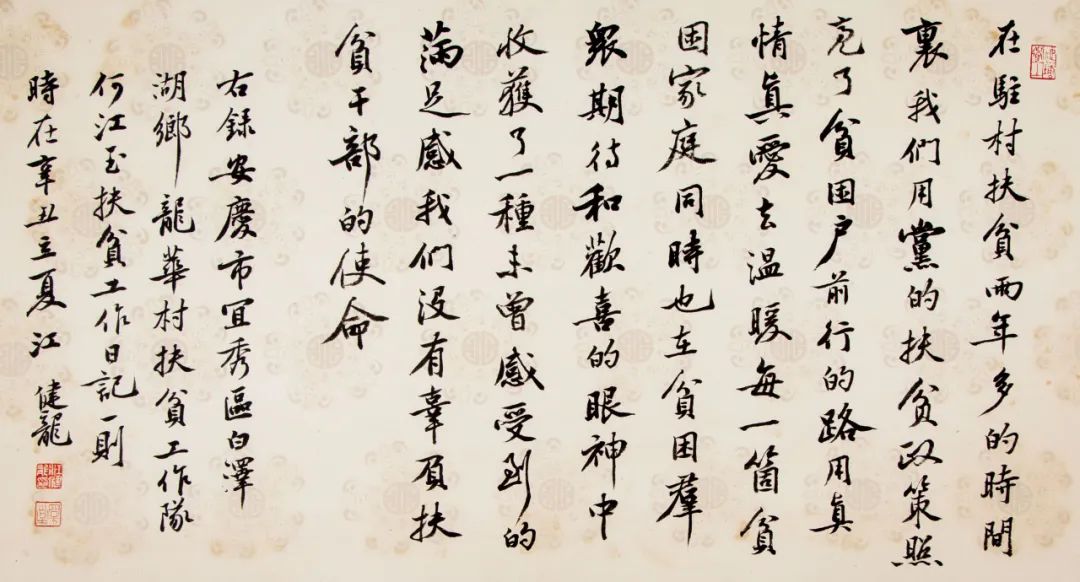 在駐村扶貧兩年多的時間
裏我們用黨的扶贫政策照
亮了貧困户前行的路用真
情真愛去温暖每一箇貧
困家庭同時也在貧困羣
衆期待和歡喜的眼神中
收獲了一種未曾感受到的
滿足感我们没有辜負扶
貧干部的使命
右録安慶市宜秀區白澤
湖鄉龍華村扶貧工作隊
何江玉扶貧工作日記一則
時在辛丑立夏江健龍